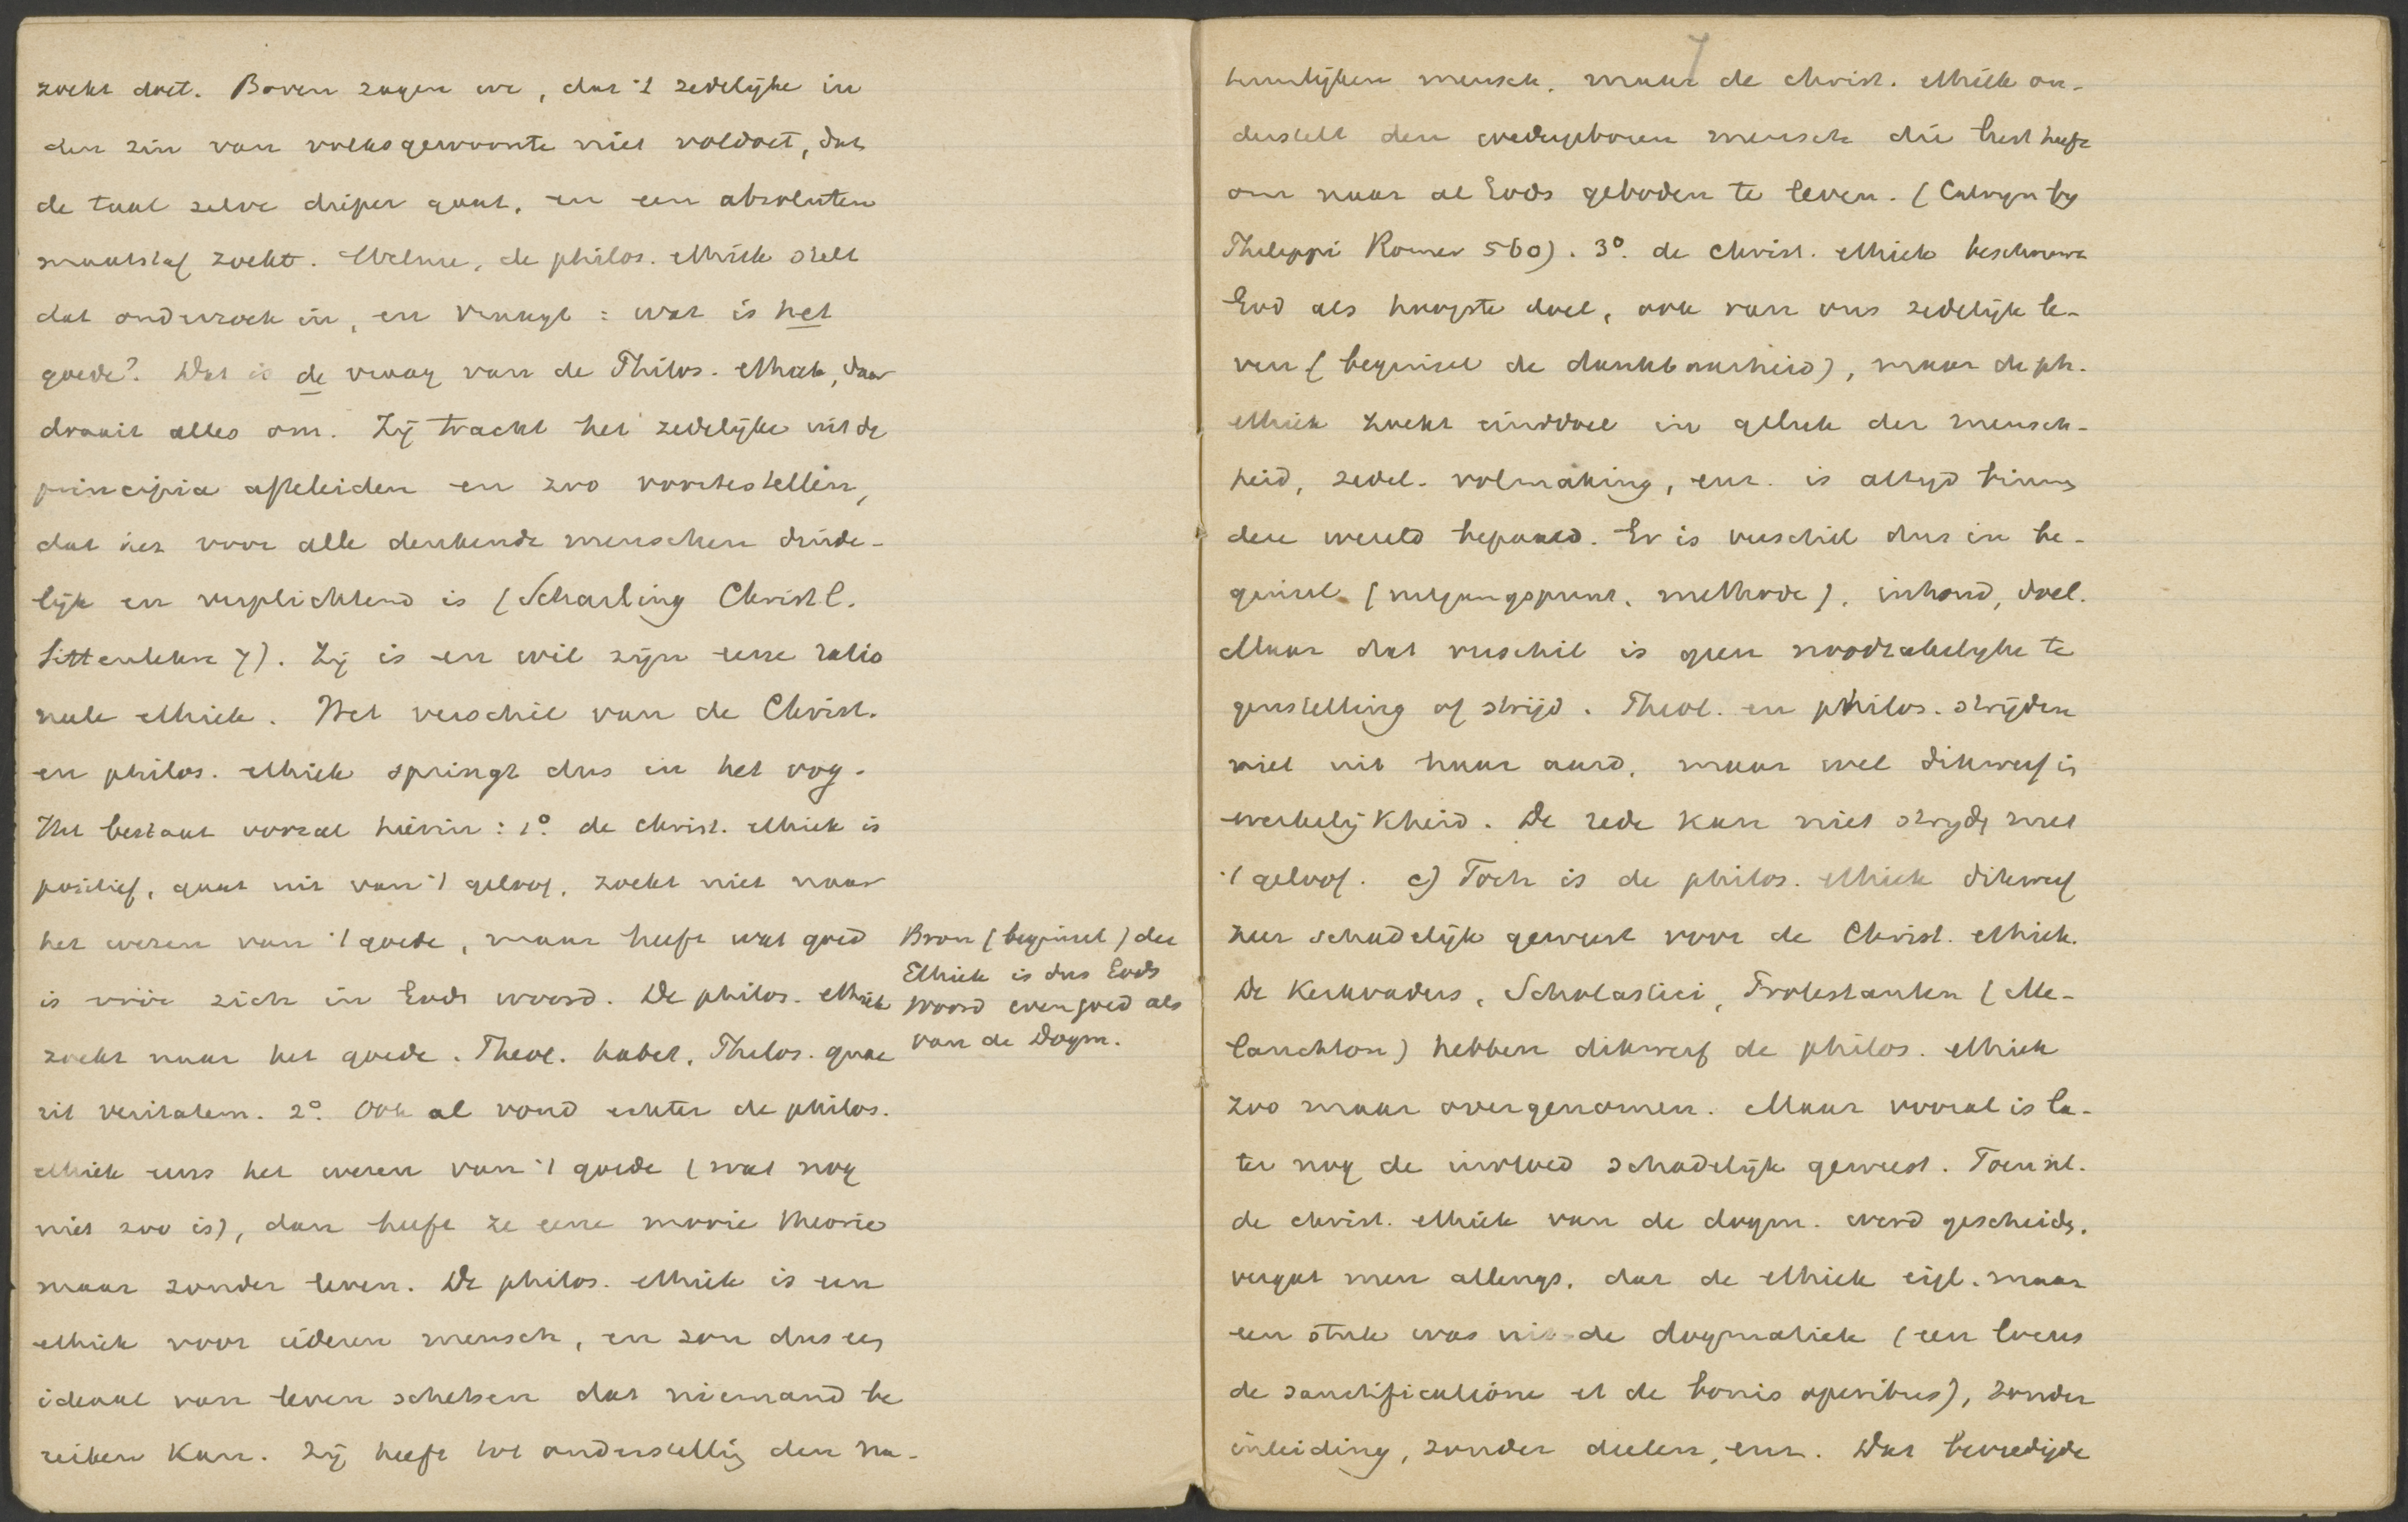 zoekt doet. Boven zagen we, dat 't zedelijke in
den zin van volksgewoonte niet voldoet, dat
de taal zelve dieper gaat, en een absoluten
maatstaf zoekt. Welnu, de philos. ethiek stelt
dat onderzoek in, en vraagt: wat is het
goede? Dat is de vraag van de Philos. ethiek, daar
draait alles om. Zij tracht het zedelijke uit de
principia afteleiden en zoo voortestellen,
dat het voor alle denkende menschen duide-
lijk en verplichtend is (Scharling Christl.
Sittenlehre 7). Zij is en wil zijn eene ratio
neele ethiek. Het verschil van de Christ.
en philos. ethiek springt dus in het oog.
Het bestaat vooral hierin: 1o. de christ. ethiek is
positief, gaat uit van 't geloof, zoekt niet naar
het wezen van 't goede, maar heeft wat goed
is vóór zich in Gods woord. De philos. ethiek
zoekt naar het goede. Theol. habet, Philos. quae
rit veritatem. 2o. Ook al vond echter de philos.
ethiek eens het wezen van 't goede (wat nog
niet zoo is), dan heeft ze eene mooie theorie
maar zonder leven. De philos. ethiek is een
ethiek voor iederen mensch, en zou dus een
ideaal van leven schetsen dat niemand be
reiken kan. Zij heeft tot onderstelling den na-
Bron (beginsel) der
Ethiek is dus Gods
woord evengoed als
van de Dogm.
7
tuurlijken mensch, maar de christ. ethiek on-
derstelt den wedergeboren mensch die lust heeft
om naar al Gods geboden te leven. (Calvyn by
Philippi Romer 560). 3o. de christ. ethiek beschouwt
God als hoogste doel, ook van ons zedelijk le-
ven (beginsel de dankbaarheid), maar de ph.
ethiek zoekt einddoel in geluk der mensch-
heid, zedel. volmaking, enz. is altyd binnen
deze wereld bepaald. Er is verschil dus in be-
ginsel (uitgangspunt, methode), inhoud, doel.
Maar dat verschil is geen noodzakelyke te
genstelling of strijd. Theol. en philos. strijden
niet uit haar aard, maar wel dikwerf in
werkelijkheid. De rede kan niet stryden met
't geloof. c) Toch is de philos. ethiek dikwerf
zeer schadelijk geweest voor de Christ. ethiek.
De Kerkvaders, Scholastici, Protestanten (Me-
lanchton) hebben dikwerf de philos. ethiek
zoo maar overgenomen. Maar vooral is la-
ter nog de invloed schadelijk geweest. Toen nl.
de christ. ethiek van de dogm. werd gescheiden,
vergat men allengs, dat de ethiek eigl. maar
een stuk was uit de dogmatiek (een locus
de sanctificatione et de bonis operibus), zonder
inleiding, zonder deelen, enz. Dat bevredigde